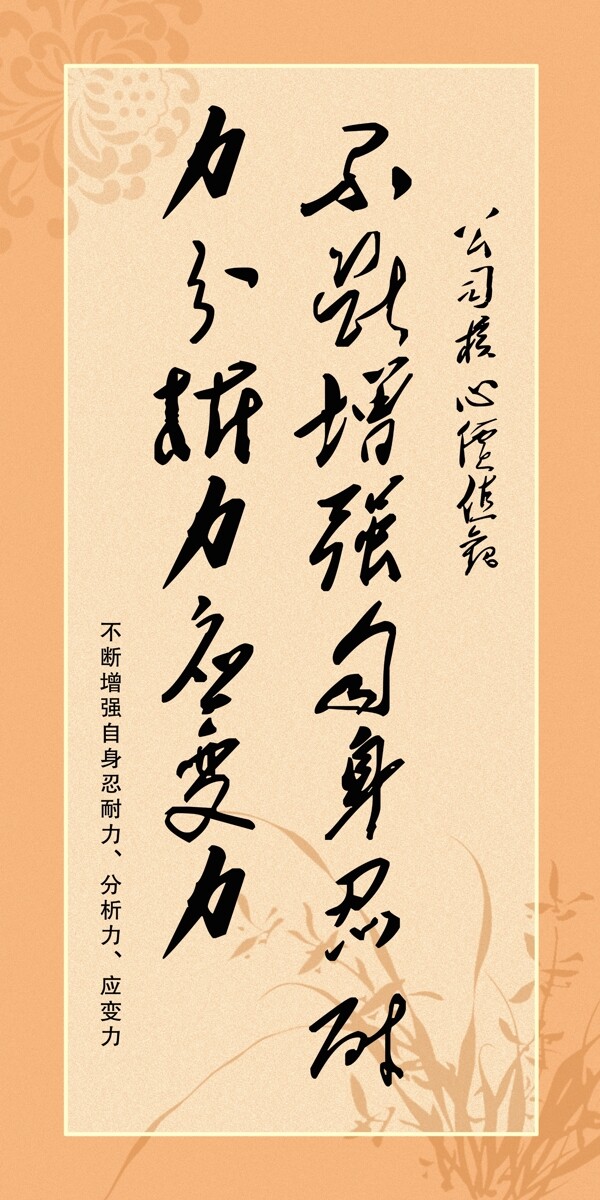 公司核心價值觀
不斷增强自身忍耐
力分析力应变力
不断增强自身忍耐力、分析力、应变力